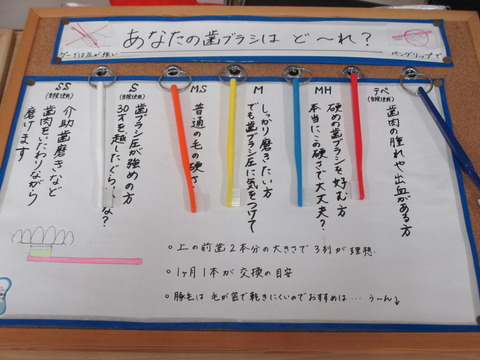 あなたの歯ブラシは ど〜れ？
グーでは圧が強い
ペングリップで
テペ
(当院使用)
歯肉の腫れや出血がある方
MH
硬めの歯ブラシを好む方
本当にこの硬さで大丈夫？
M
しっかり磨きたい方
でも歯ブラシ圧に気をつけて
MS
普通の毛の硬さ
S
(当院使用)
歯ブラシ圧が強めの方
30才を越したぐらいかな？
SS
(当院使用)
介助歯磨きなど
歯肉をいたわりながら
磨けます
○上の前歯2本分の大きさで3列が理想
○1ヶ月1本が交換の目安
○豚毛は毛が密で乾きにくいのでおすすめは…う〜ん